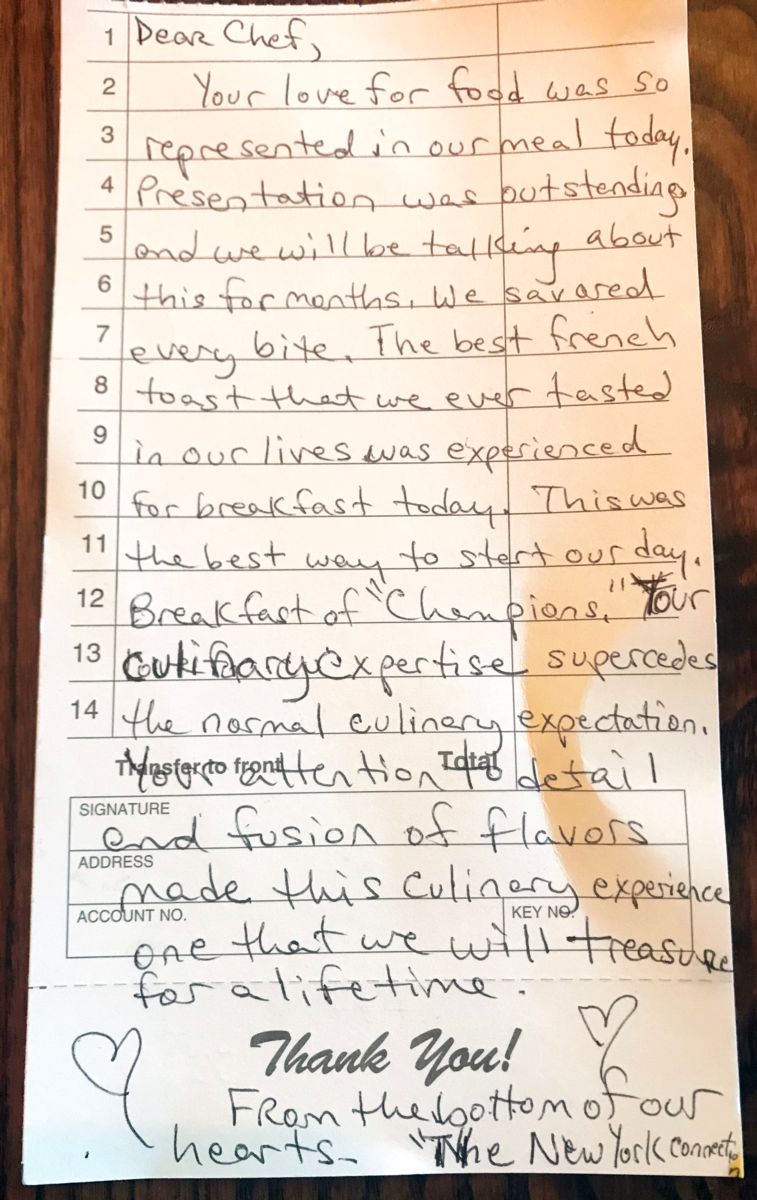 1 Dear Chef,
2 Your love for food was so
3 represented in our meal today.
4 Presentation was outstending
5 and we will be talking about
6 this for months. We savored
7 every bite. The best french
8 toast that we ever tasted
9 in our lives was experienced
10 for breakfast today. This was
11 the best way to start our day.
12 Breakfast of "Champions." Your
13 culinary expertise supercedes
14 the normal culinary expectation.
Transfer to front Total
Your attention to detail
SIGNATURE
and fusion of flavors
ADDRESS
made this culinary experience
ACCOUNT NO. KEY NO.
one that we will treasure
for a lifetime.
Thank You!
From the bottom of our
hearts- "The New York Connection